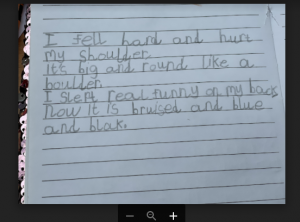 I fell hard and hurt
my shoulder.
It's big and round like a
boulder.
I slept real funny on my back
now it is bruised and blue
and blak.